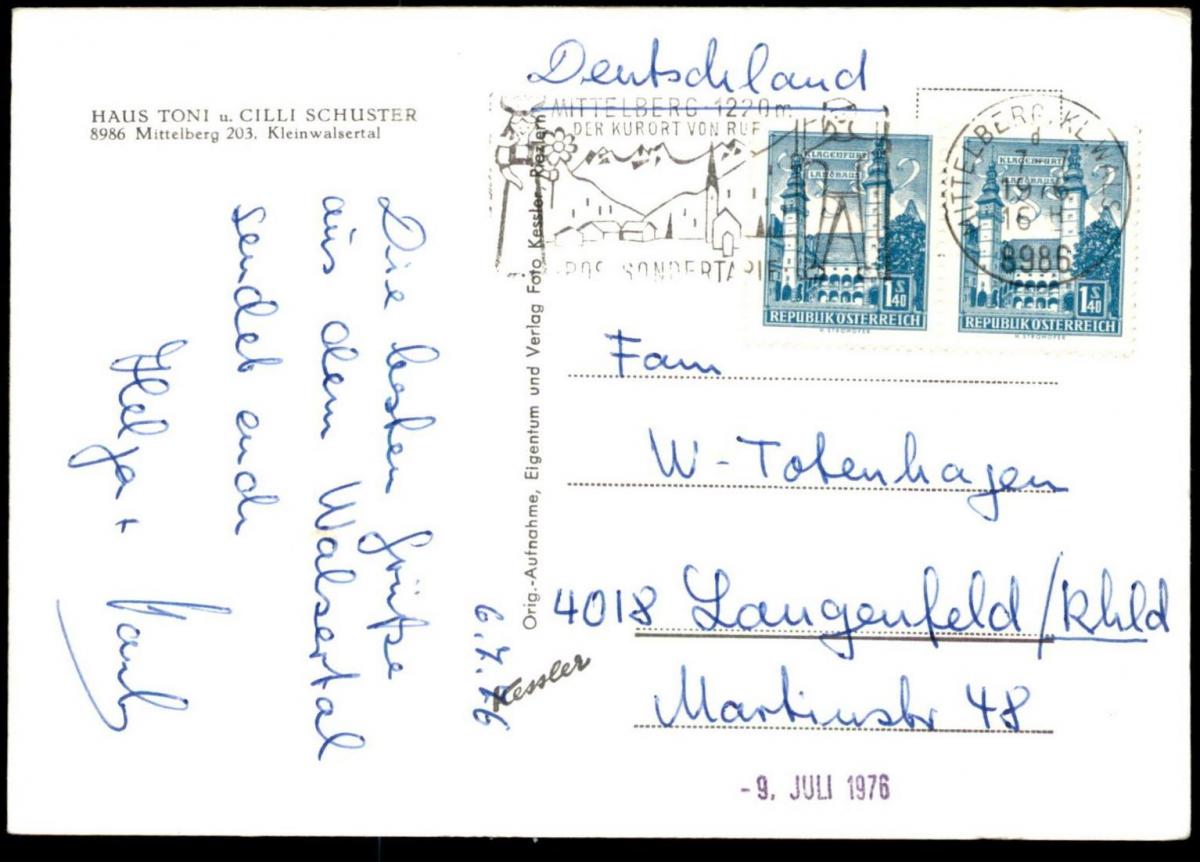 HAUS TONI u. CILLI SCHUSTER
8986 Mittelberg 203, Kleinwalsertal
Die besten Grüße
aus dem Walsertal
sendet euch
Helga +
6.7.76
Orig.-Aufnahme, Eigentum und Verlag Foto Kessler, Riezlern
Kessler
Deutschland
MITTELBERG 1220m
DER KURORT VON RUF
SONDERTARIF
MITTELBERG, KLWALS
8986
KLAGENFURT
LANDHAUS
1 S 40
REPUBLIK ÖSTERREICH
H. STROHOFER
KLAGENFURT
LANDHAUS
1 S 40
REPUBLIK ÖSTERREICH
H. STROHOFER
Fam
W-Totenhagen
4018 Langenfeld/Rhld
Martinstr 48
-9. JULI 1976